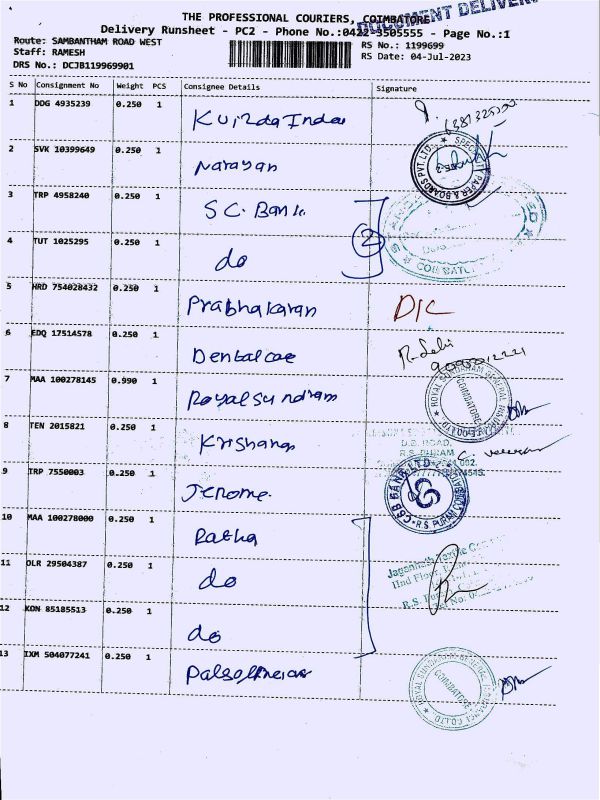 THE PROFESSIONAL COURIERS, COIMBATORE
DOCUMENT DELIVERY
Delivery Runsheet - PC2 - Phone No.:0422-3505555 - Page No.:1
Route: SAMBANTHAM ROAD WEST
RS No.: 1199699
Staff: RAMESH
RS Date: 04-Jul-2023
DRS No.: DCJB119969901
S No Consignment No Weight PCS Consignee Details Signature
1 DDG 4935239 0.250 1
2 SVK 10399649 0.250 1 Narayan
SPECI PAPER & BOARDS PVT. LTD.
3 TRP 4958240 0.250 1 S.C. Bank
2
4 TUT 1025295 0.250 1 do
COIMBATORE
5 HRD 754028432 0.250 1 Prabhakaran D/C
6 EDQ 17514578 0.250 1 Dentalcae
7 MAA 100278145 0.990 1 Royalsundram
ROYAL SUNDARAM GENERAL COIMBATORE
8 TEN 2015821 0.250 1
D.B. ROAD,
R.S. PURAM
9 TRP 7550003 0.250 1 Jerome.
CSB BANK LTD R.S. PURAM
10 MAA 100278000 0.250 1 Ratha
11 DLR 29504387 0.250 1 do
Jagannath Textile
IInd Floor
R.S.
12 KON 85185513 0.250 1 do
13 IXM 504077241 0.250 1
ROYAL SUNDARAM GENERAL COIMBATORE